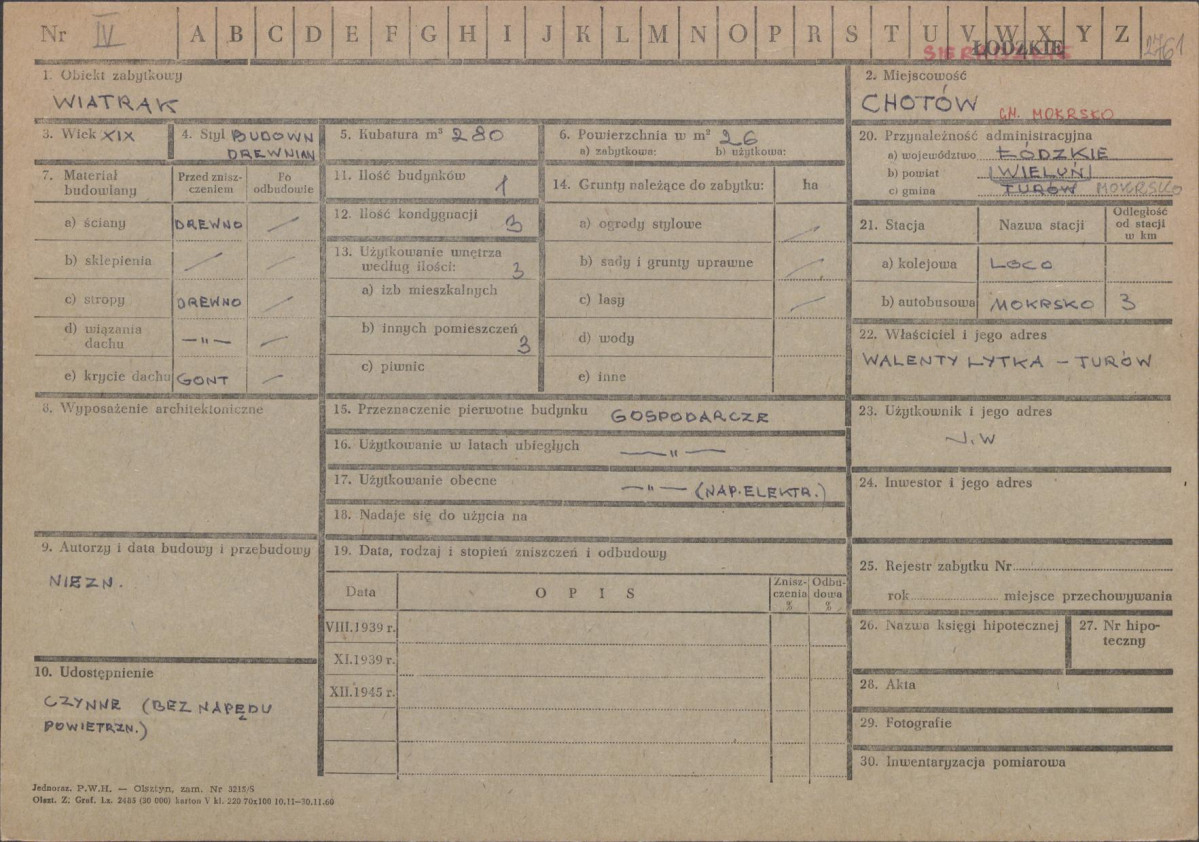 Nr IV A B C D E F G H I J K L M N O P R S T U V W X Y Z 2761
ŁÓDZKIE
1. Obiekt zabytkowy
WIATRAK
2. Miejscowość
CHOTÓW GM. MOKRSKO
3. Wiek XIX
4. Styl BUDOWN
DREWNIAN
5. Kubatura m³ 280
6. Powierzchnia w m² 26
a) zabytkowa: b) użytkowa:
7. Materiał budowlany
Przed znisz-
czeniem
Po
odbudowie
a) ściany DREWNO —
b) sklepienia — —
c) stropy DREWNO —
d) wiązania
dachu —„— —
e) krycie dachu GONT —
8. Wyposażenie architektoniczne
9. Autorzy i data budowy i przebudowy
NIEZN.
10. Udostępnienie
CZYNNE (BEZ NAPĘDU
POWIETRZN.)
11. Ilość budynków
1
12. Ilość kondygnacji
3
13. Użytkowanie wnętrza
według ilości: 3
a) izb mieszkalnych
b) innych pomieszczeń
3
c) piwnic
14. Grunty należące do zabytku: ha
a) ogrody stylowe —
b) sady i grunty uprawne —
c) lasy —
d) wody
e) inne
15. Przeznaczenie pierwotne budynku GOSPODARCZE
16. Użytkowanie w latach ubiegłych —„—
17. Użytkowanie obecne —„— (NAP. ELEKTR.)
18. Nadaje się do użycia na
19. Data, rodzaj i stopień zniszczeń i odbudowy
Data O P I S Znisz-
czenia
% Odbu-
dowa
%
VIII.1939 r.
XI.1939 r.
XII.1945 r.
20. Przynależność administracyjna
a) województwo ŁÓDZKIE
b) powiat WIELUŃ
c) gmina TURÓW MOKRSKO
21. Stacja Nazwa stacji Odległość
od stacji
w km
a) kolejowa LOCO
b) autobusowa MOKRSKO 3
22. Właściciel i jego adres
WALENTY LYTKA – TURÓW
23. Użytkownik i jego adres
J.W
24. Inwestor i jego adres
25. Rejestr zabytku Nr
rok miejsce przechowywania
26. Nazwa księgi hipotecznej
27. Nr hipo-
teczny
28. Akta
29. Fotografie
30. Inwentaryzacja pomiarowa
Jednoraz. P.W.H. — Olsztyn, zam. Nr 3215/S
Olszt. Z. Graf. l.z. 2485 (20 000) karton V kl. 220 70x100 10.11—30.11.60